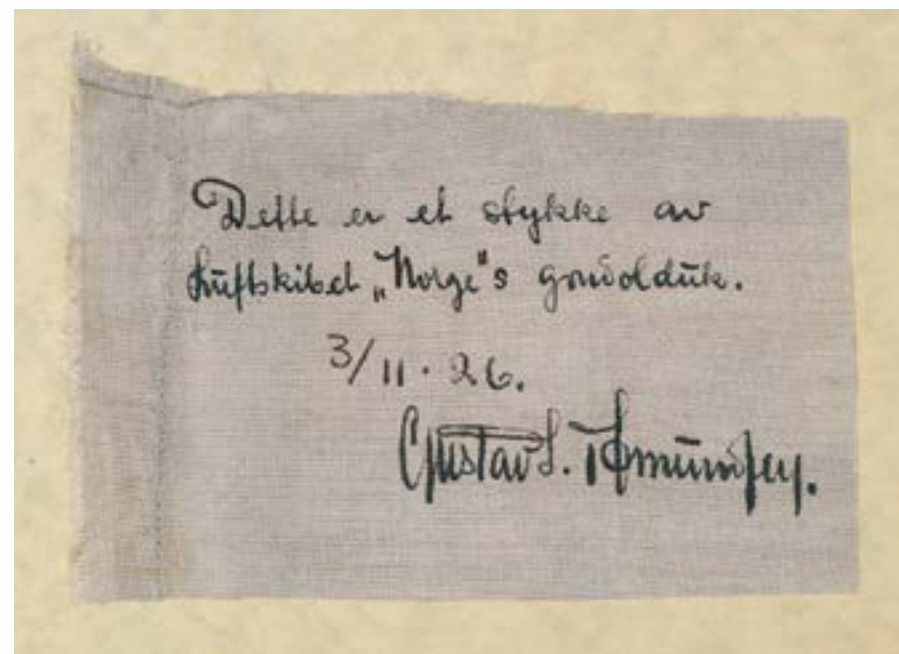 Dette er et stykke av
Luftskibet „Norge"s gondolduk.
3/11·26.
Gustav S. Amundsen.